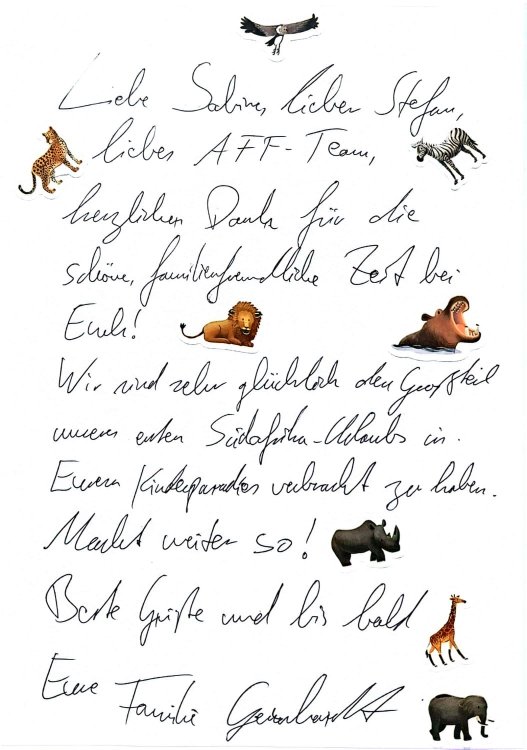 Liebe Sabine, lieber Stefan,
liebes AFF-Team,
herzlichen Dank für die
schöne, familienfreundliche Zeit bei
Euch!
Wir sind sehr glücklich den Großteil
unseres ersten Südafrika-Urlaubs in
Eurem Kinderparadies verbracht zu haben.
Macht weiter so!
Beste Grüße und bis bald
Eure
Familie